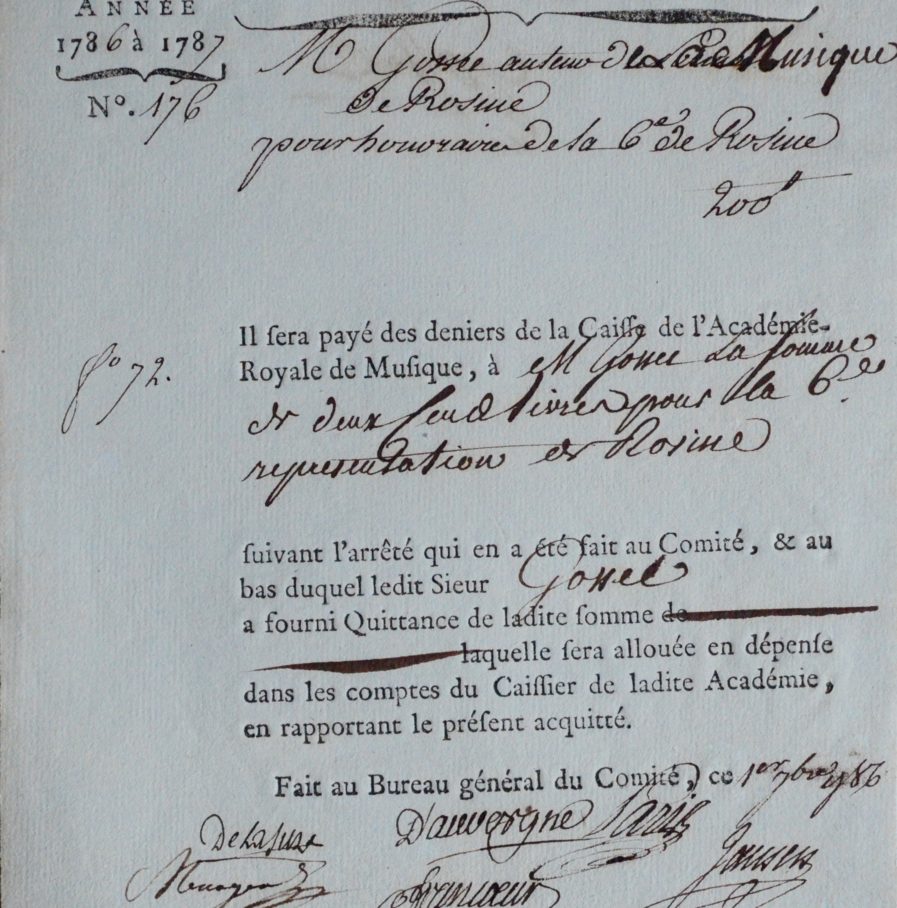 ANNÉE
1786 à 1787
N°. 176
M Gossec auteur de la Musique
de Rosine
pour honoraire de la 6e de Rosine
200#
Il sera payé des deniers de la Caisse de l'Académie-
f° 72.
Royale de Musique, à M Gossec La somme
de deux Cent Livres pour la 6.de
representation de Rosine
suivant l'arrêté qui en a été fait au Comité, & au
bas duquel ledit Sieur Gossec
a fourni Quittance de ladite somme de
laquelle sera allouée en dépense
dans les comptes du Caissier de ladite Académie,
en rapportant le présent acquitté.
Fait au Bureau général du Comité, ce 1er 7bre 1786
De la suze D'auvergne Jansen
Francœur